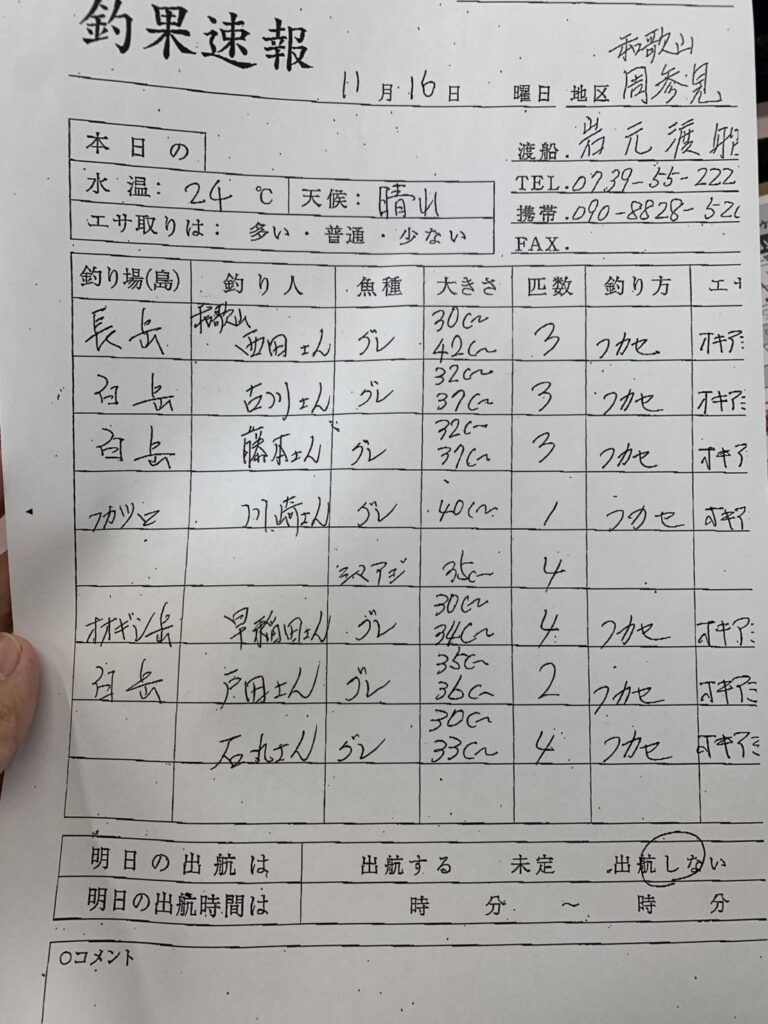 釣果速報
11月16日 曜日 地区 和歌山 周参見
渡船. 岩元渡船
TEL.0739-55-222
携帯.090-8828-520
FAX.
本日の
水温: 24℃ 天候: 晴れ
エサ取りは: 多い・普通・少ない
釣り場(島) 釣り人 魚種 大きさ 匹数 釣り方 エサ
長岳 和歌山 西田さん グレ 30㎝ 42㎝ 3 フカセ オキアミ
白岳 古川さん グレ 32㎝ 37㎝ 3 フカセ オキアミ
白岳 藤本さん グレ 32㎝ 37㎝ 3 フカセ オキア
川崎さん グレ 40㎝ 1 フカセ オキア
シマアジ 35㎝ 4
オオギシ岳 早稲田さん グレ 30㎝ 34㎝ 4 フカセ オキアミ
白岳 戸田さん グレ 35㎝ 36㎝ 2 フカセ オキアミ
石丸さん グレ 30㎝ 33㎝ 4 フカセ オキアミ
明日の出航は 出航する 未定 出航しない
明日の出航時間は 時 分 ~ 時 分
○コメント